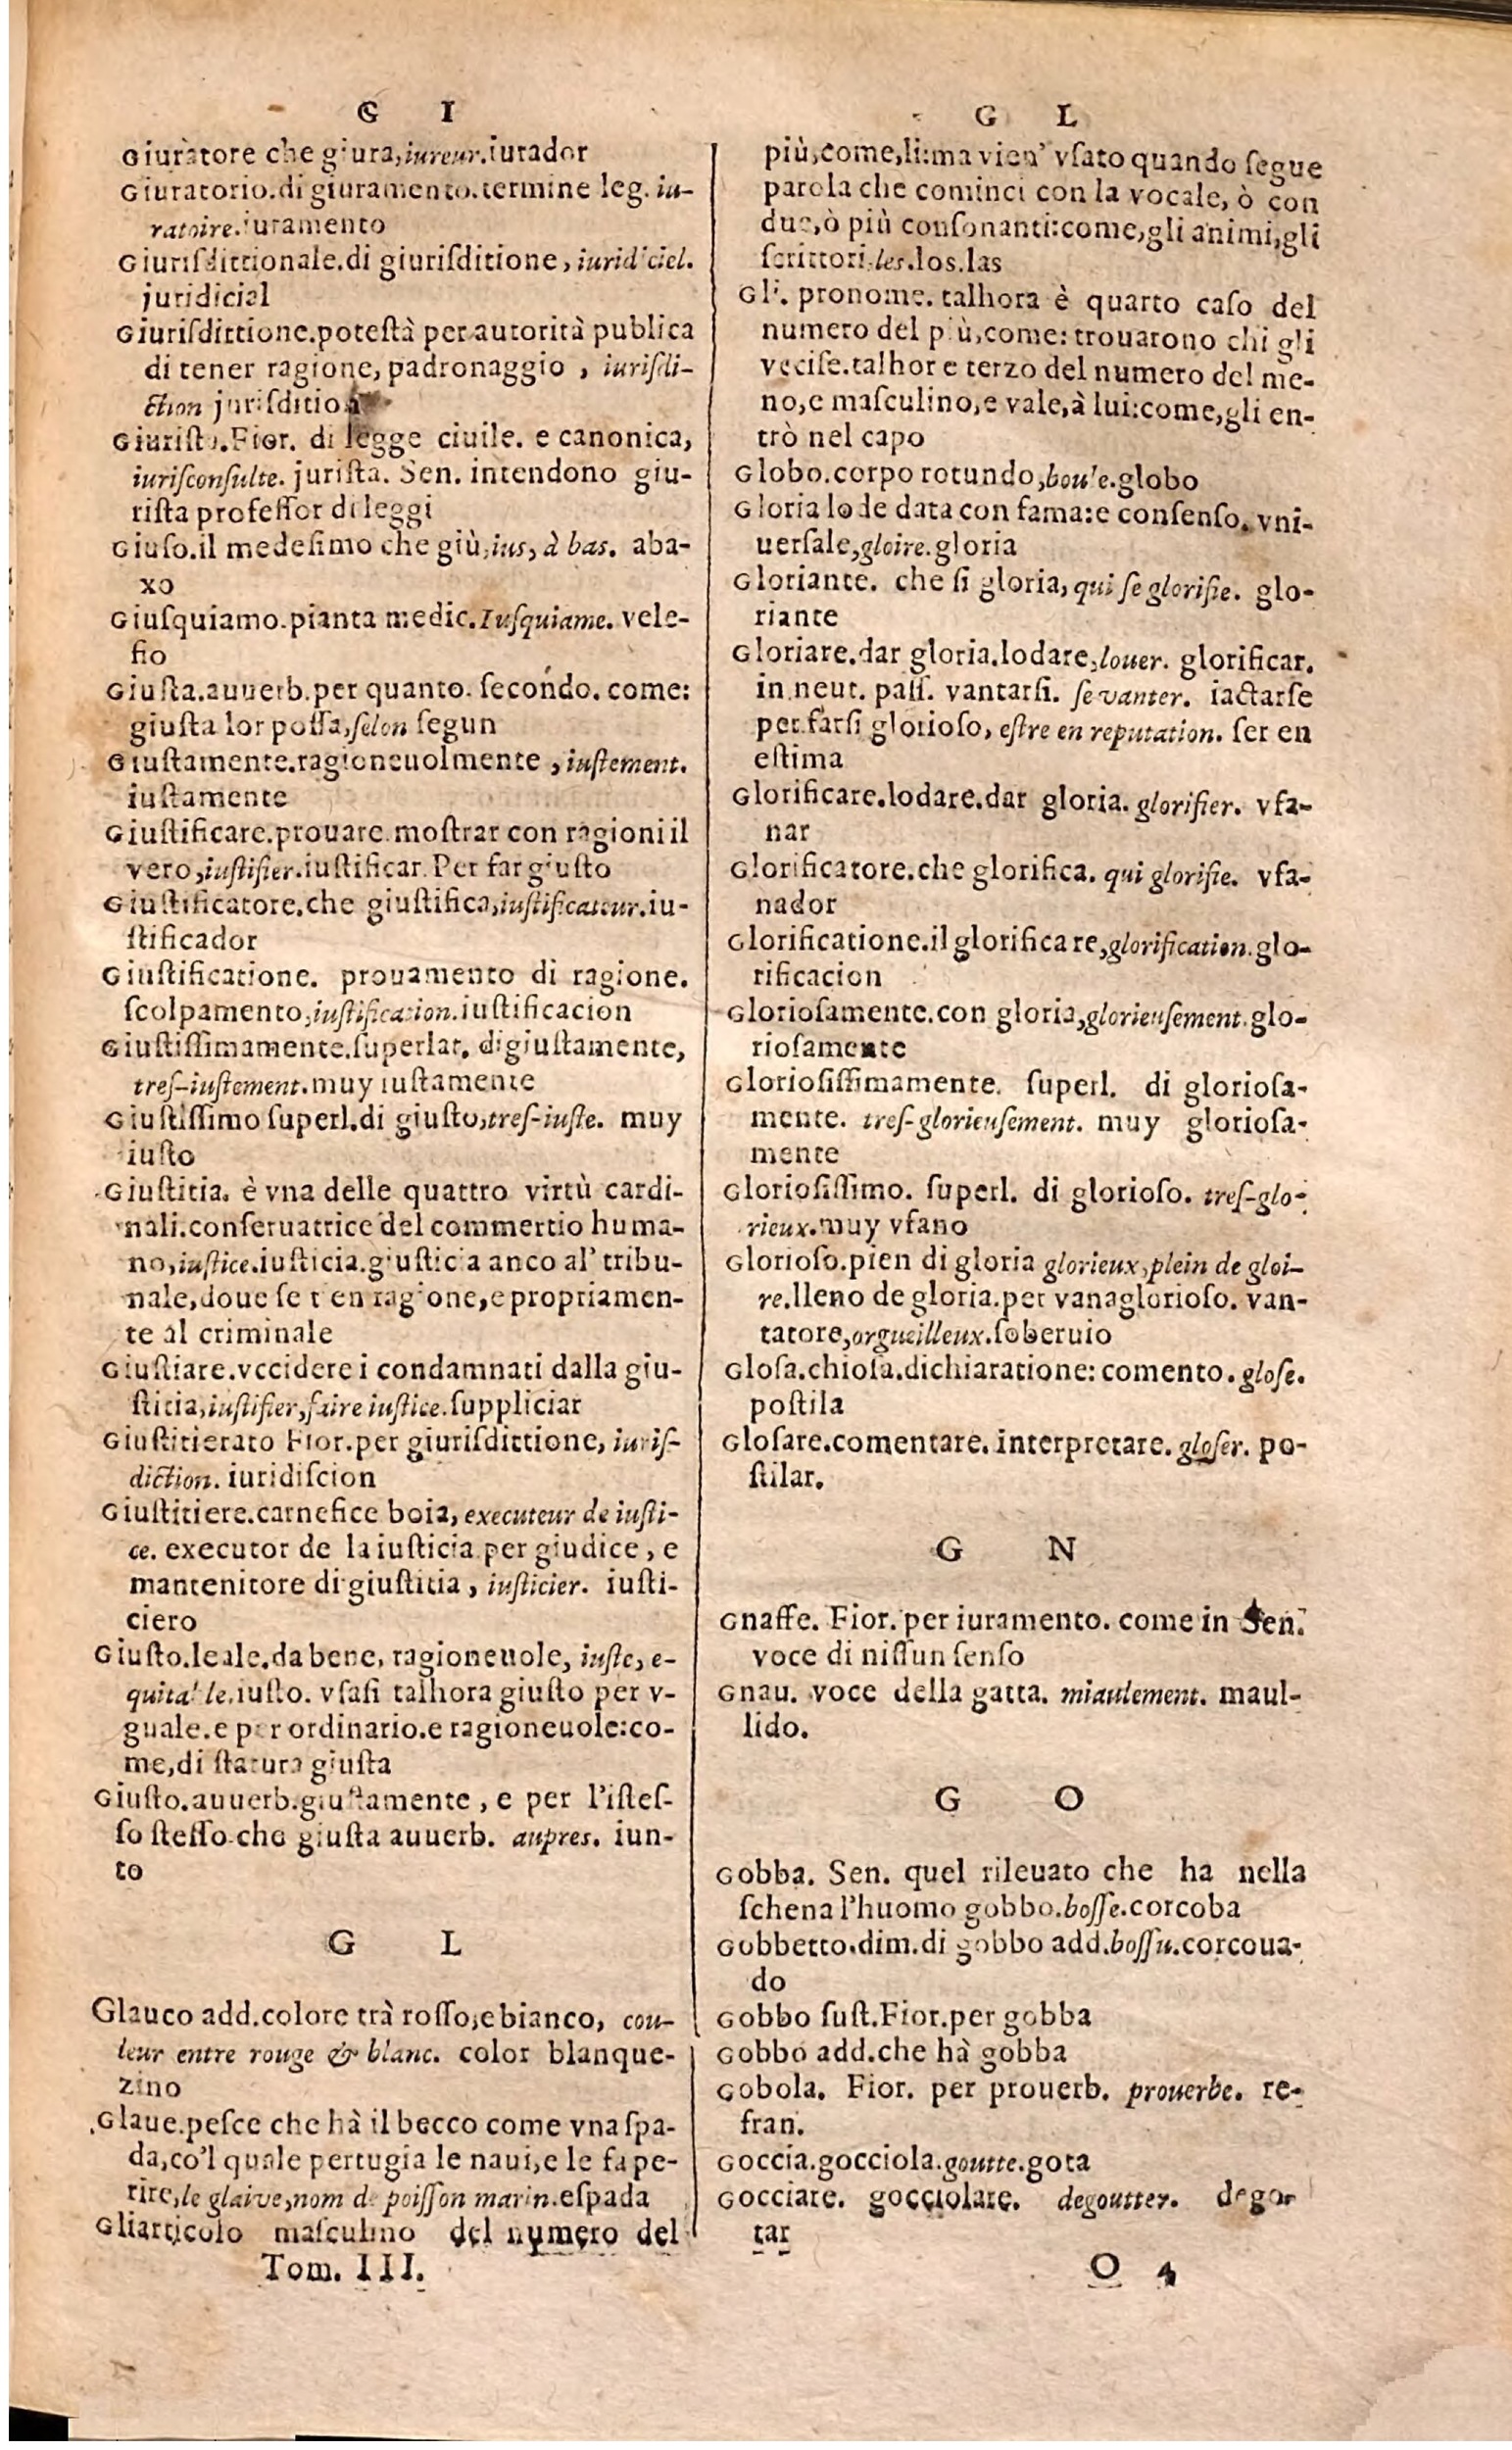 G I
Giuratore che giura, iureur. iurador
Giuratorio. di giuramento. termine leg. iu-
ratoire. iuramento
Giurisdittionale. di giuriſditione, iuridiciel.
juridicial
Giuriſdittione. poteſtà per autorità publica
di tener ragione, padronaggio, iuriſdi-
ction juriſdition
Giuriſta. Fior. di legge ciuile. e canonica,
iuriſconſulte. juriſta. Sen. intendono giu-
riſta profeſſor di leggi
Giuſo. il medeſimo che giù, ius, à bas. aba-
xo
Giuſquiamo. pianta medic. Iuſquiame. vele-
ño
Giuſta. auuerb. per quanto. ſecondo. come:
giuſta lor poſſa, ſelon ſegun
Giuſtamente. ragioneuolmente, iuſtement.
iuſtamente
Giuſtificare. prouare. moſtrar con ragioni il
vero, iuſtifier. iuſtificar. Per far giuſto
Giuſtificatore. che giuſtifica, iuſtificateur. iu-
ſtificador
Giuſtificatione. prouamento di ragione.
ſcolpamento, iuſtification. iuſtificacion
Giuſtiſſimamente. ſuperlat. di giuſtamente,
treſ-iuſtement. muy iuſtamente
Giuſtiſſimo ſuperl. di giuſto, treſ-iuſte. muy
iuſto
Giuſtitia. è vna delle quattro virtù cardi-
nali. conſeruatrice del commertio huma-
no, iuſtice. iuſticia. giuſticia anco al' tribu-
nale, doue ſe tien ragione, e propriamen-
te al criminale
Giuſtiare. vccidere i condamnati dalla giu-
ſtitia, iuſtifier, faire iuſtice. ſuppliciar
Giuſtitierato Fior. per giuriſdittione, iuriſ-
diction. iuridiſcion
Giuſtitiere. carnefice boia, executeur de iuſti-
ce. executor de la iuſticia. per giudice, e
mantenitore di giuſtitia, iuſticier. iuſti-
ciero
Giuſto. leale. da bene, ragioneuole, iuſte, e-
quitable. iuſto. vſaſi talhora giuſto per v-
guale. e per ordinario. e ragioneuole: co-
me, di ſtatura giuſta
Giuſto. auuerb. giuſtamente, e per l'iſteſ-
ſo ſteſſo che giuſta auuerb. aupres. iun-
to
G L
Glauco add. colore trà roſſo, e bianco, cou-
leur entre rouge & blanc. color blanque-
zino
Glaue. peſce che hà il becco come vna ſpa-
da, co'l quale pertugia le naui, e le fa pe-
rire, le glaive, nom de poiſſon marin. eſpada
Gli articolo maſculino del numero del
Tom. III.
G L
più, come, li: ma vien' vſato quando ſegue
parola che cominci con la vocale, ò con
due, ò più conſonanti: come, gli animi, gli
ſcrittori. les. los. las
Gli. pronome. talhora è quarto caſo del
numero del più, come: trouarono chi gli
vcciſe. talhor e terzo del numero del me-
no, e maſculino, e vale, à lui: come, gli en-
trò nel capo
Globo. corpo rotundo, boule. globo
Gloria lode data con fama: e conſenſo. vni-
uerſale, gloire. gloria
Gloriante. che ſi gloria, qui ſe glorifie. glo-
riante
Gloriare. dar gloria. lodare, louer. glorificar.
in neut. paſſ. vantarſi. ſe vanter. iactarſe
per farſi glorioſo, eſtre en reputation. ſer en
eſtima
Glorificare. lodare. dar gloria. glorifier. vfa-
nar
Glorificatore. che glorifica. qui glorifie. vfa-
nador
Glorificatione. il glorificare, glorification. glo-
rificacion
Glorioſamente. con gloria, glorieuſement. glo-
rioſamente
Glorioſiſſimamente. ſuperl. di glorioſa-
mente. treſ-glorieuſement. muy glorioſa-
mente
Glorioſiſſimo. ſuperl. di glorioſo. treſ-glo-
rieux. muy vfano
Glorioſo. pien di gloria glorieux, plein de gloi-
re. lleno de gloria. per vanaglorioſo. van-
tatore, orgueilleux. ſoberuio
Gloſa. chioſa. dichiaratione: comento. gloſe.
poſtila
Gloſare. comentare. interpretare. gloſer. po-
ſtilar.
G N
Gnaffe. Fior. per iuramento. come in Sen.
voce di niſſun ſenſo
Gnau. voce della gatta. miaulement. maul-
lido.
G O
Gobba. Sen. quel rileuato che ha nella
ſchena l'huomo gobbo. boſſe. corcoba
Gobbetto. dim. di gobbo add. boſſu. corcoua-
do
Gobbo ſuſt. Fior. per gobba
Gobbo add. che hà gobba
Gobola. Fior. per prouerb. prouerbe. re-
fran.
Goccia. gocciola. goutte. gota
Gocciare. gocciolare. degoutter. degor
tar
O 4